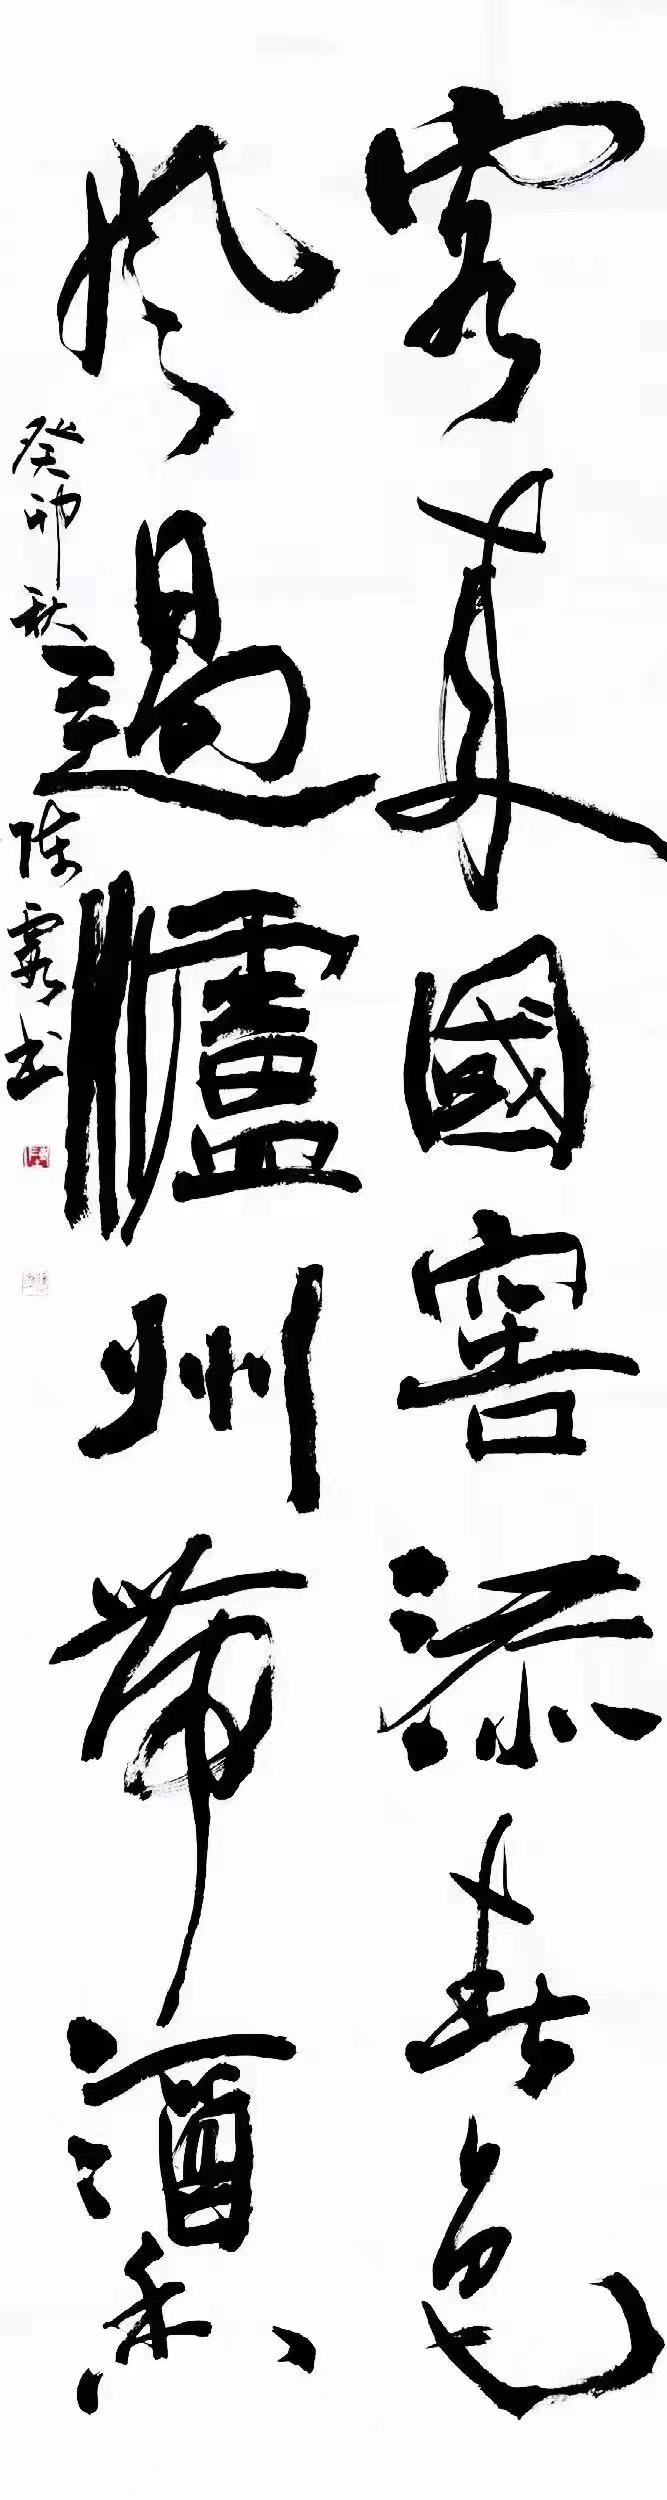 客來國窖添春色
風過瀘州帶酒香
癸卯秋 陈书